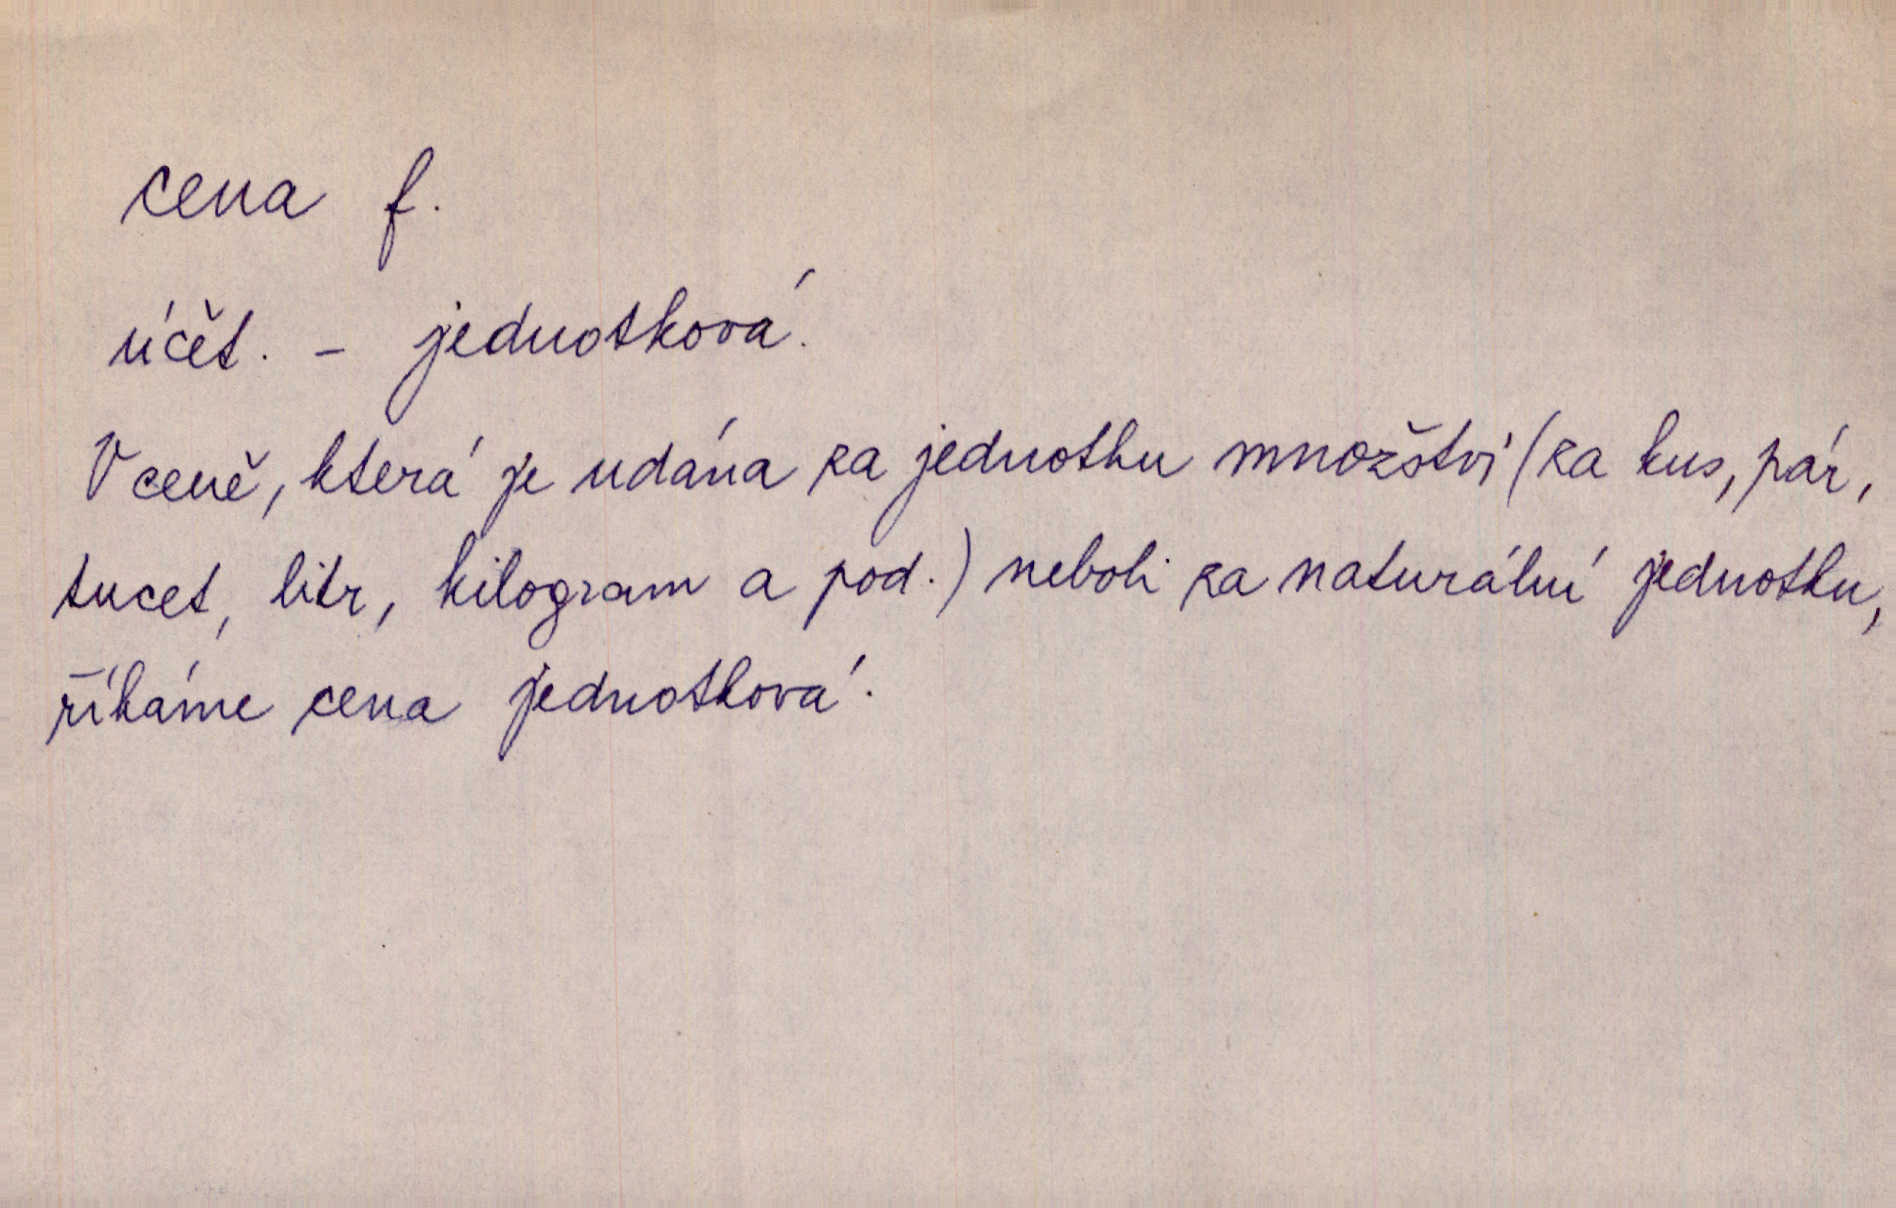 cena f.
účět. – jednotková.
V ceně, která je udána za jednotku množství (za kus, pár,
tucet, litr, kilogram a pod.) neboli za naturální jednotku,
říkáme cena jednotková.